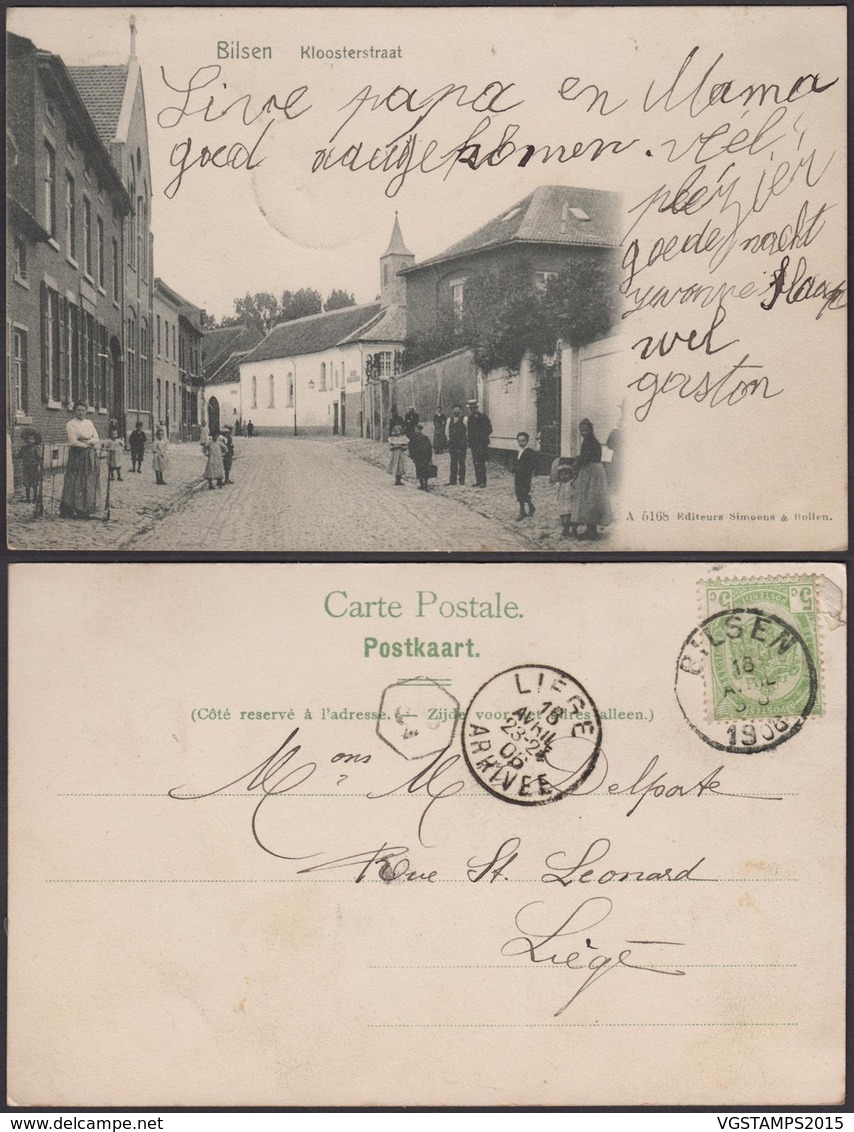 Bilsen Kloosterstraat
Live papa en Mama
goed aangekomen. veel
plezier
goede nacht
yvonne slaap
wel
gaston
A 5168 Editeurs Simoens & Rollen.
Carte Postale.
Postkaart.
(Côté reservé à l'adresse. — Zijde voor het adres alleen.)
BILSEN
18
1906
5c 5c
LIEGE
18
AVRIL
23-24
06
ARRIVEE
Mons M Delporte
Rue St. Leonard
Liége
VGSTAMPS2015